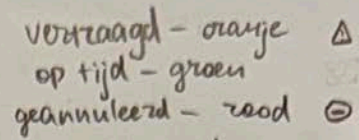 vertraagd – oranje
op tijd – groen
geannuleerd – rood